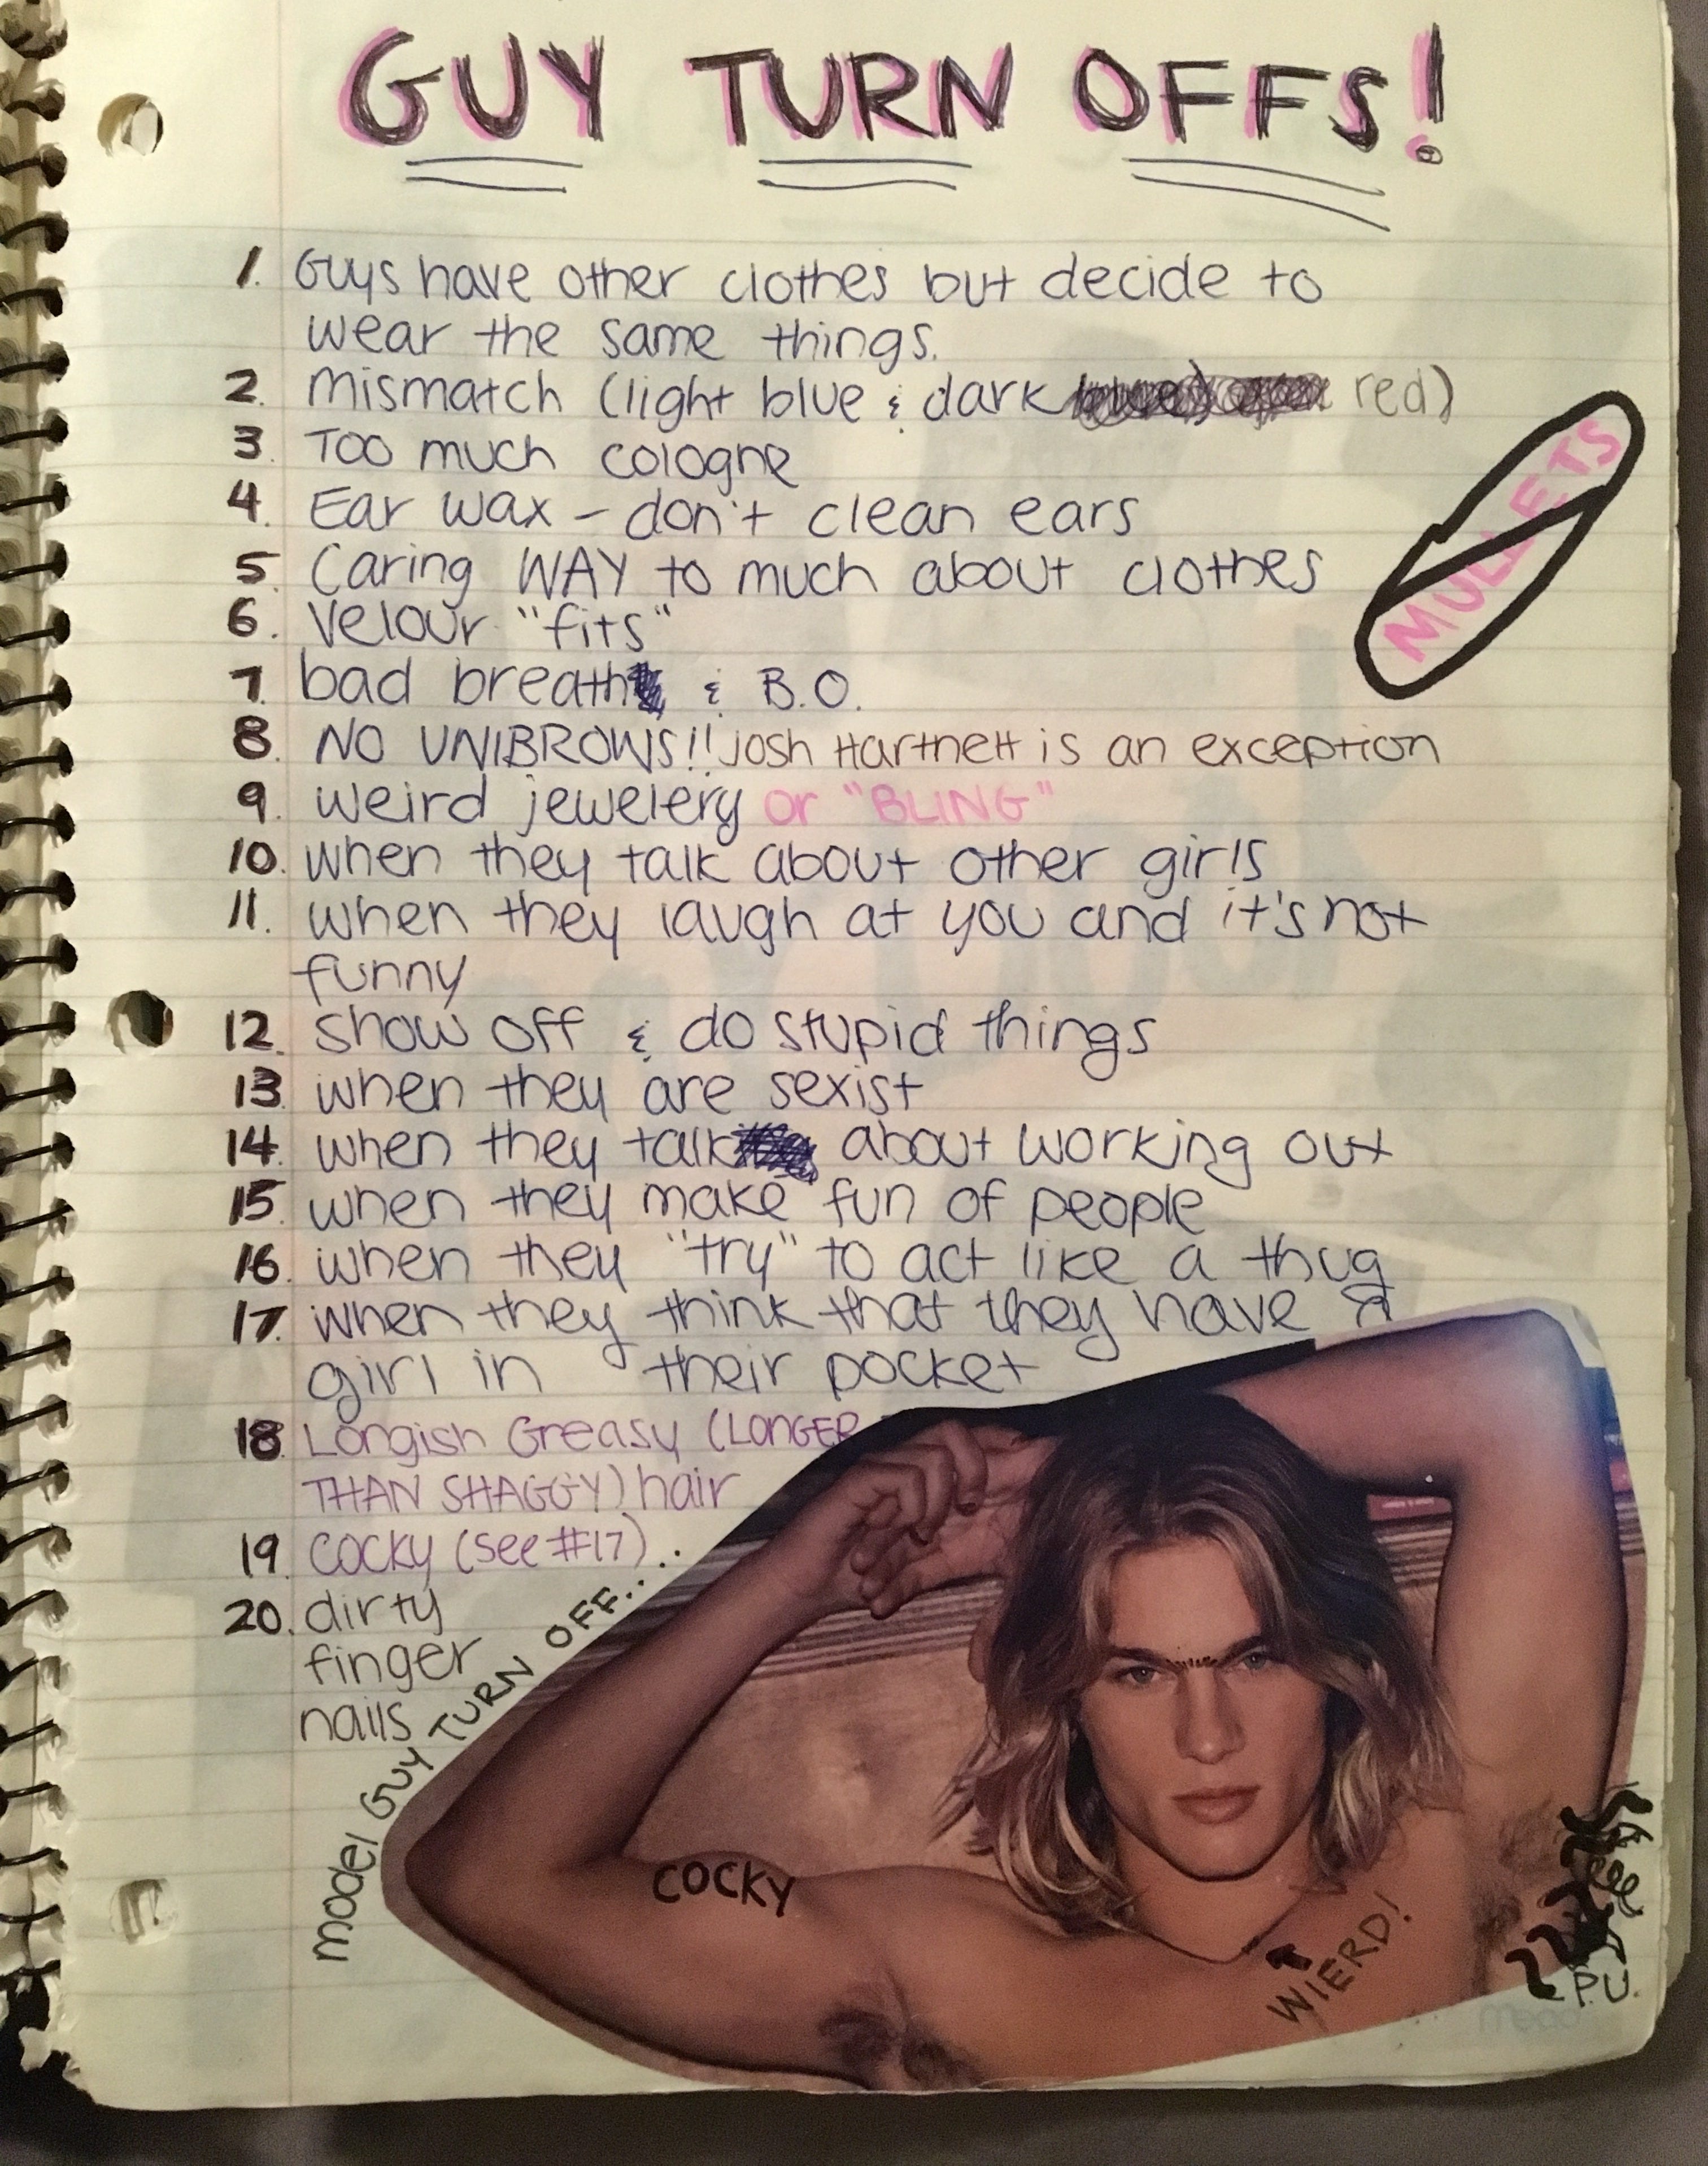 GUY TURN OFFS!
1. Guys have other clothes but decide to
wear the same things.
2. Mismatch (light blue & dark red)
3. Too much cologne
4. Ear wax - don't clean ears
5. Caring WAY to much about clothes
6. Velour "fits"
7. bad breath & B.O.
8. NO UNIBROWS!! Josh Hartnett is an exception
9. weird jewelery or "BLING"
10. when they talk about other girls
11. when they laugh at you and it's not
funny
12. show off & do stupid things
13. when they are sexist
14. when they talk about working out
15. when they make fun of people
16. when they "try" to act like a thug
17. when they think that they have a
girl in their pocket
18. Longish Greasy (LONGER
THAN SHAGGY) hair
19. cocky (see #17)..
20. dirty
finger
nails
MULLETS
model GUY TURN OFF...
COCKY
WIERD!
P.U.
mead